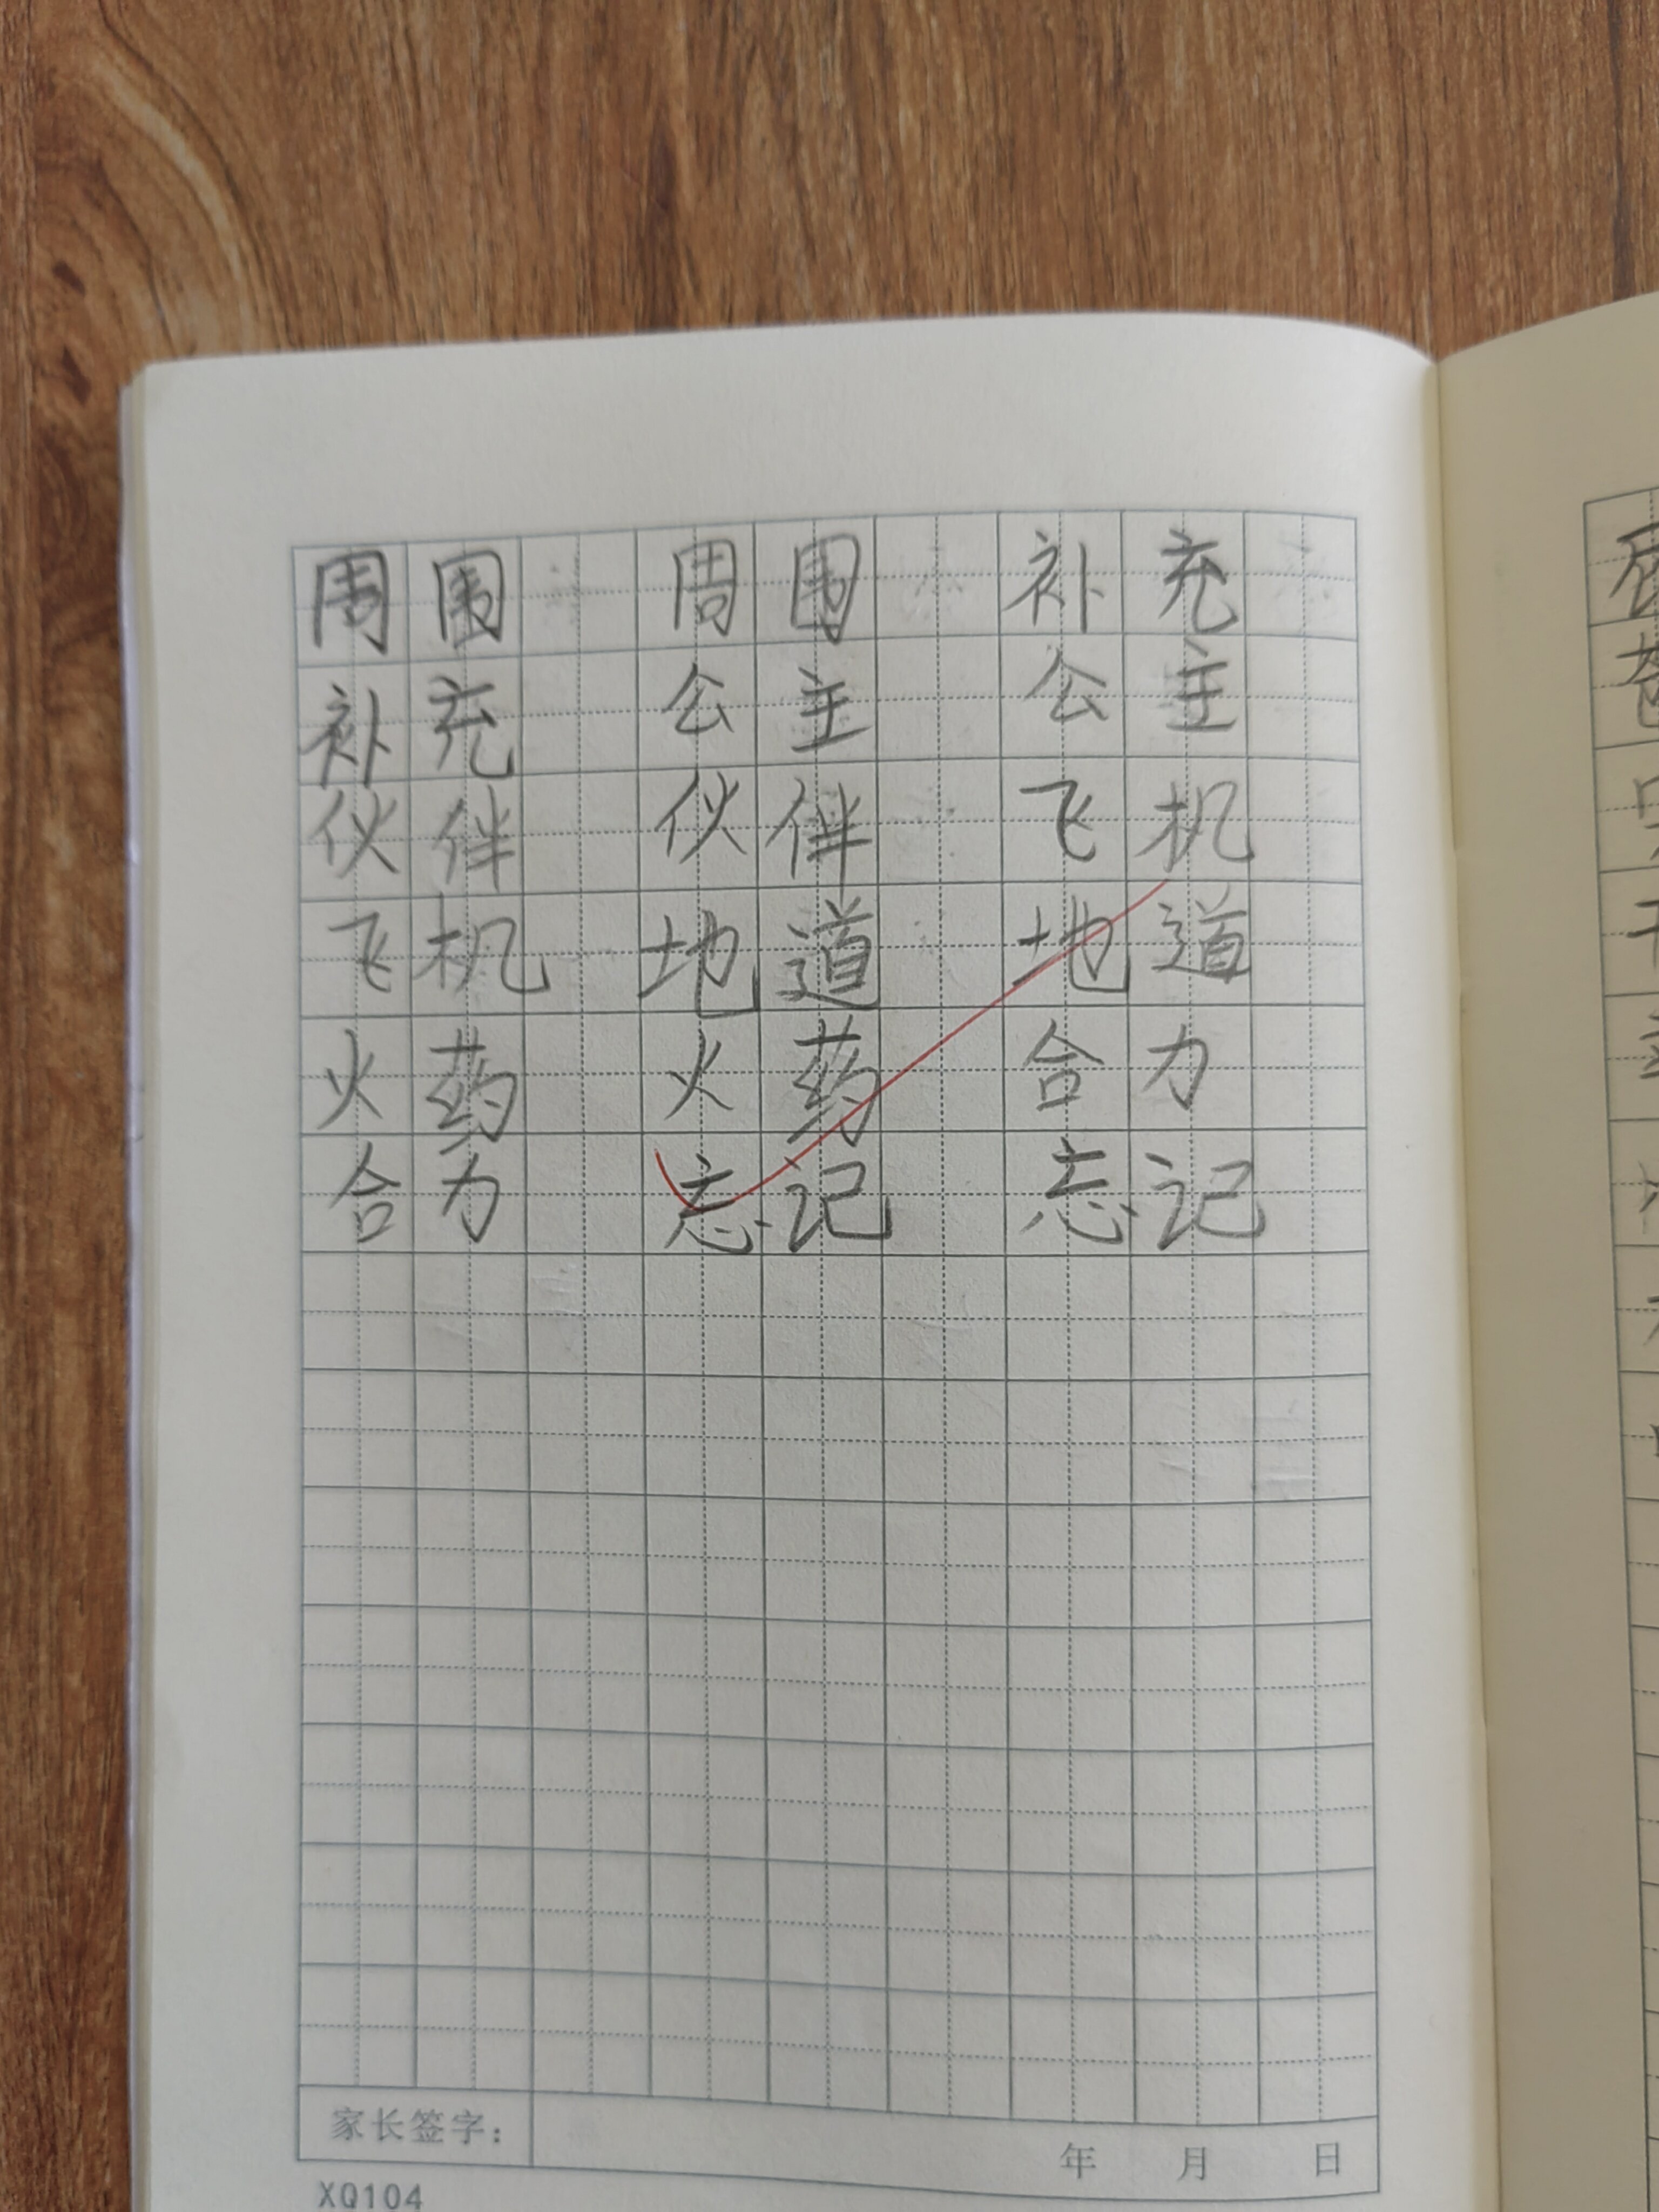 周围 周围 补充
补充 公主 公主
伙伴 伙伴 飞机
飞机 地道 地道
火药 火药 合力
合力 忘记 忘记
家长签字: 年 月 日
XQ104